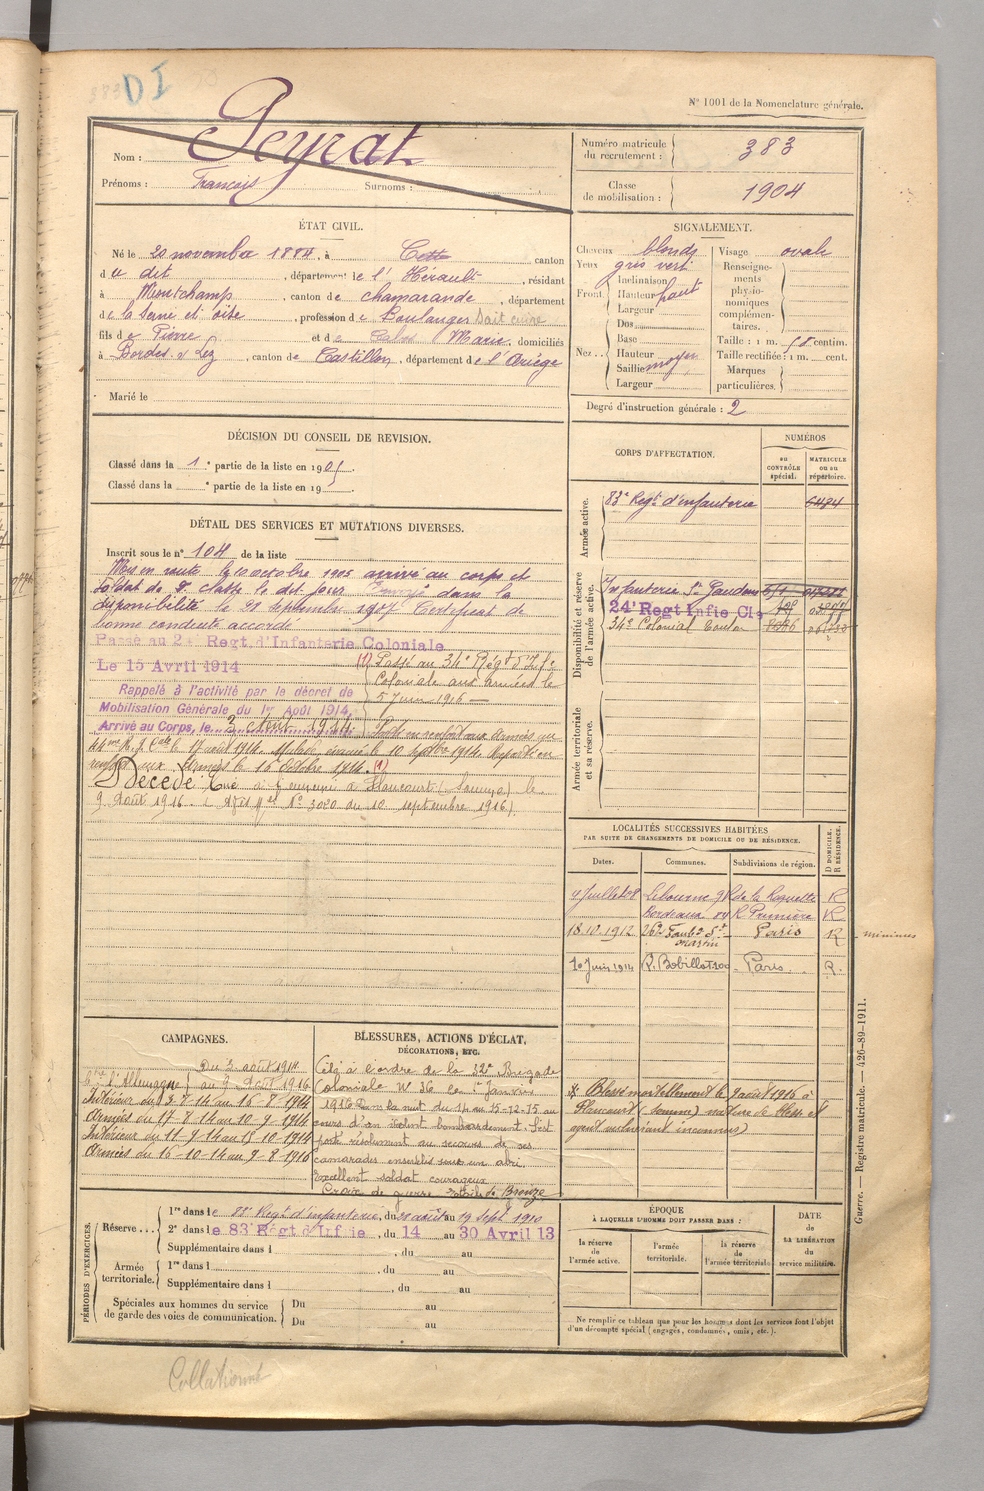 383 DI
N° 1001 de la Nomenclature générale.
Nom : Peyrat
Prénoms : François Surnoms :
Numéro matricule du recrutement : 383
Classe de mobilisation : 1904
ÉTAT CIVIL.
Né le 20 novembre 1884, à Cette canton
du dit, département de l'Hérault, résidant
à Montchamp, canton de Chamarande, département
de la Seine et Oise, profession de Boulanger Sait cuire
fils de Pierre et de Marie, domiciliés
à Bordes s/ Lez, canton de Castillon, département de l'Ariège
Marié le
SIGNALEMENT.
Cheveux blonds
Yeux gris vert
Front Inclinaison
Hauteur haut
Largeur
Nez Dos
Base
Hauteur
Saillie moyen
Largeur
Visage ovale
Renseignements physionomiques complémentaires.
Taille : 1 m. 58 centim.
Taille rectifiée : 1 m. cent.
Marques particulières.
Degré d'instruction générale : 2
DÉCISION DU CONSEIL DE REVISION.
Classé dans la 1e partie de la liste en 1905.
Classé dans la e partie de la liste en 19 .
DÉTAIL DES SERVICES ET MUTATIONS DIVERSES.
Inscrit sous le n° 104 de la liste
Mis en route le 10 octobre 1905 arrivé au corps et
soldat de 2e classe le dit jour Envoyé dans la
disponibilité le 28 septembre 1907 Certificat de
bonne conduite accordé
Passé au 24e Regt. d'Infanterie Coloniale
Le 15 Avril 1914
(1) Passé au 34e Régt d'Infie
Coloniale aux armées le
5 juin 1916
Rappelé à l'activité par le décret de
Mobilisation Générale du 1er Août 1914,
Arrivé au Corps, le 3 Août 1914. Parti en renfort aux armées au
44me R. I. Cale le 17 août 1914. Malade évacué le 10 septbre 1914. Reparti en
renfort aux Armées le 16 Octobre 1914. (1)
Décédé Tué à l'ennemi à Flaucourt (Somme) le
9 Août 1916. (Avis Mel N° 3020 du 10 septembre 1916).
CORPS D'AFFECTATION.
NUMÉROS
au CONTRÔLE spécial.
MATRICULE ou au répertoire.
Armée active.
83e Regt d'infanterie 6484
Disponibilité et réserve de l'armée active.
Infanterie St Gaudens
24e Regt Infie Cle
34e Colonial Toulon
Armée territoriale et sa réserve.
LOCALITÉS SUCCESSIVES HABITÉES
PAR SUITE DE CHANGEMENTS DE DOMICILE OU DE RÉSIDENCE.
D DOMICILE. R RÉSIDENCE.
Dates. Communes. Subdivisions de région.
4 Juillet 08 Libourne 9 R de la Roquette R
Bordeaux 84 R R
18.10.1912 262 Faubg St Martin Paris R minimes
10 Juin 1914 R. Bobillot 100 Paris R.
CAMPAGNES.
Du 3 août 1914
Cre l'Allemagne au 9 août 1916
Intérieur du 3-8-14 au 16-8-1914
Armées du 17-8-14 au 10-9-1914
Intérieur du 11-9-14 au 15-10-1914
Armées du 16-10-14 au 9-8-1916
BLESSURES, ACTIONS D'ÉCLAT,
DÉCORATIONS, ETC.
Cité à l'ordre de la 32e Brigade
Coloniale N° 36 le 1er Janvier
1916 Dans la nuit du 14 au 15-12-15 au
cours d'un violent bombardement. S'est
porté résolument au secours de ses
camarades ensevelis sous un abri.
Excellent soldat courageux
Croix de guerre étoile de Bronze
Blessé mortellement le 9 août 1916 à
Flaucourt (Somme) nature de bless et
agent vulnérant inconnus)
PÉRIODES D'EXERCICES.
Réserve... 1re dans le 83e Regt d'infanterie, du 28 août au 19 Sept 1910
2e dans le 83e Régt d'Infie, du 14 au 30 Avril 13
Supplémentaire dans l , du au
Armée territoriale. 1re dans l , du au
Supplémentaire dans l , du au
Spéciales aux hommes du service de garde des voies de communication. Du au
Du au
ÉPOQUE
À LAQUELLE L'HOMME DOIT PASSER DANS :
la réserve de l'armée active.
l'armée territoriale.
la réserve de l'armée territoriale
DATE de LA LIBÉRATION du service militaire.
Ne remplir ce tableau que pour les hommes dont les services font l'objet
d'un décompte spécial (engagés, condamnés, omis, etc.).
Guerre. — Registre matricule. — 426-89-1911.
Collationné